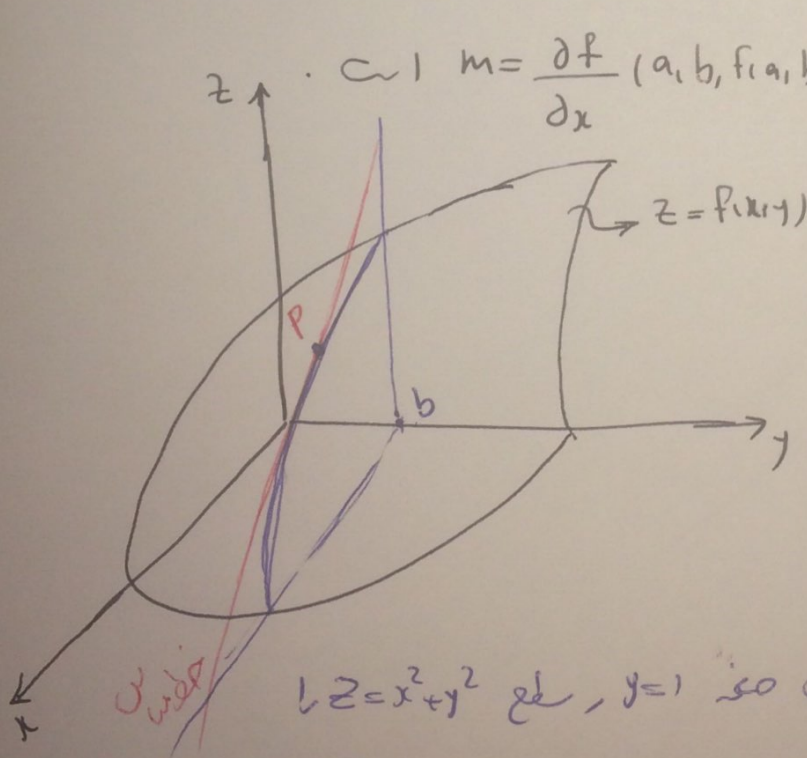 است . m = ∂f/∂x (a, b, f(a,
z
z = f(x,y)
P
b
y
x
خط مماس
صفحه y=1 , رویه z=x²+y² را